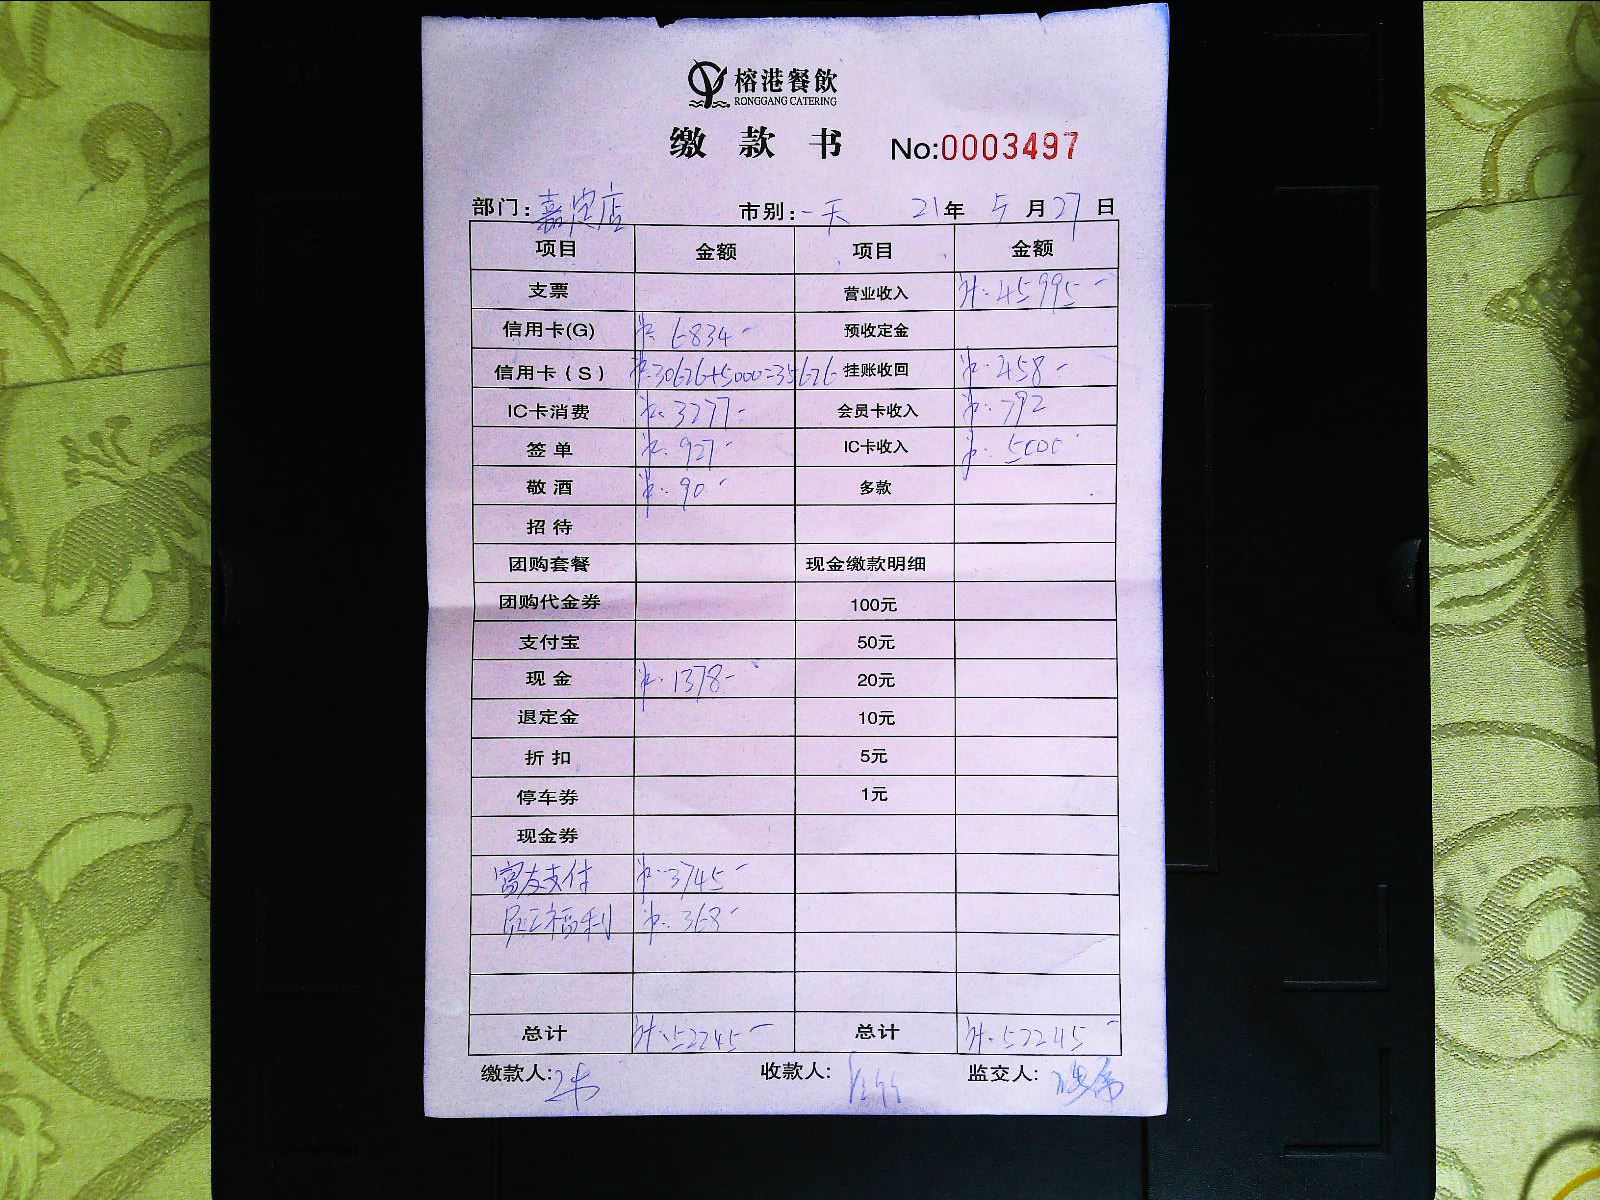 榕港餐飲
RONGGANG CATERING
缴 款 书 No:0003497
部门：嘉定店 市别：一天 21年 5月27日
项目 金额 项目 金额
支票 营业收入 45995-
信用卡(G) 6834- 预收定金
信用卡（S） 30676+5000=35676 挂账收回 458-
IC卡消费 3277- 会员卡收入 792
签单 927- IC卡收入 5000
敬酒 90- 多款
招待
团购套餐 现金缴款明细
团购代金券 100元
支付宝 50元
现金 1378- 20元
退定金 10元
折扣 5元
停车券 1元
现金券
富友支付 3745-
员工福利 368-
总计 52245- 总计 52245-
缴款人: 收款人: 监交人: